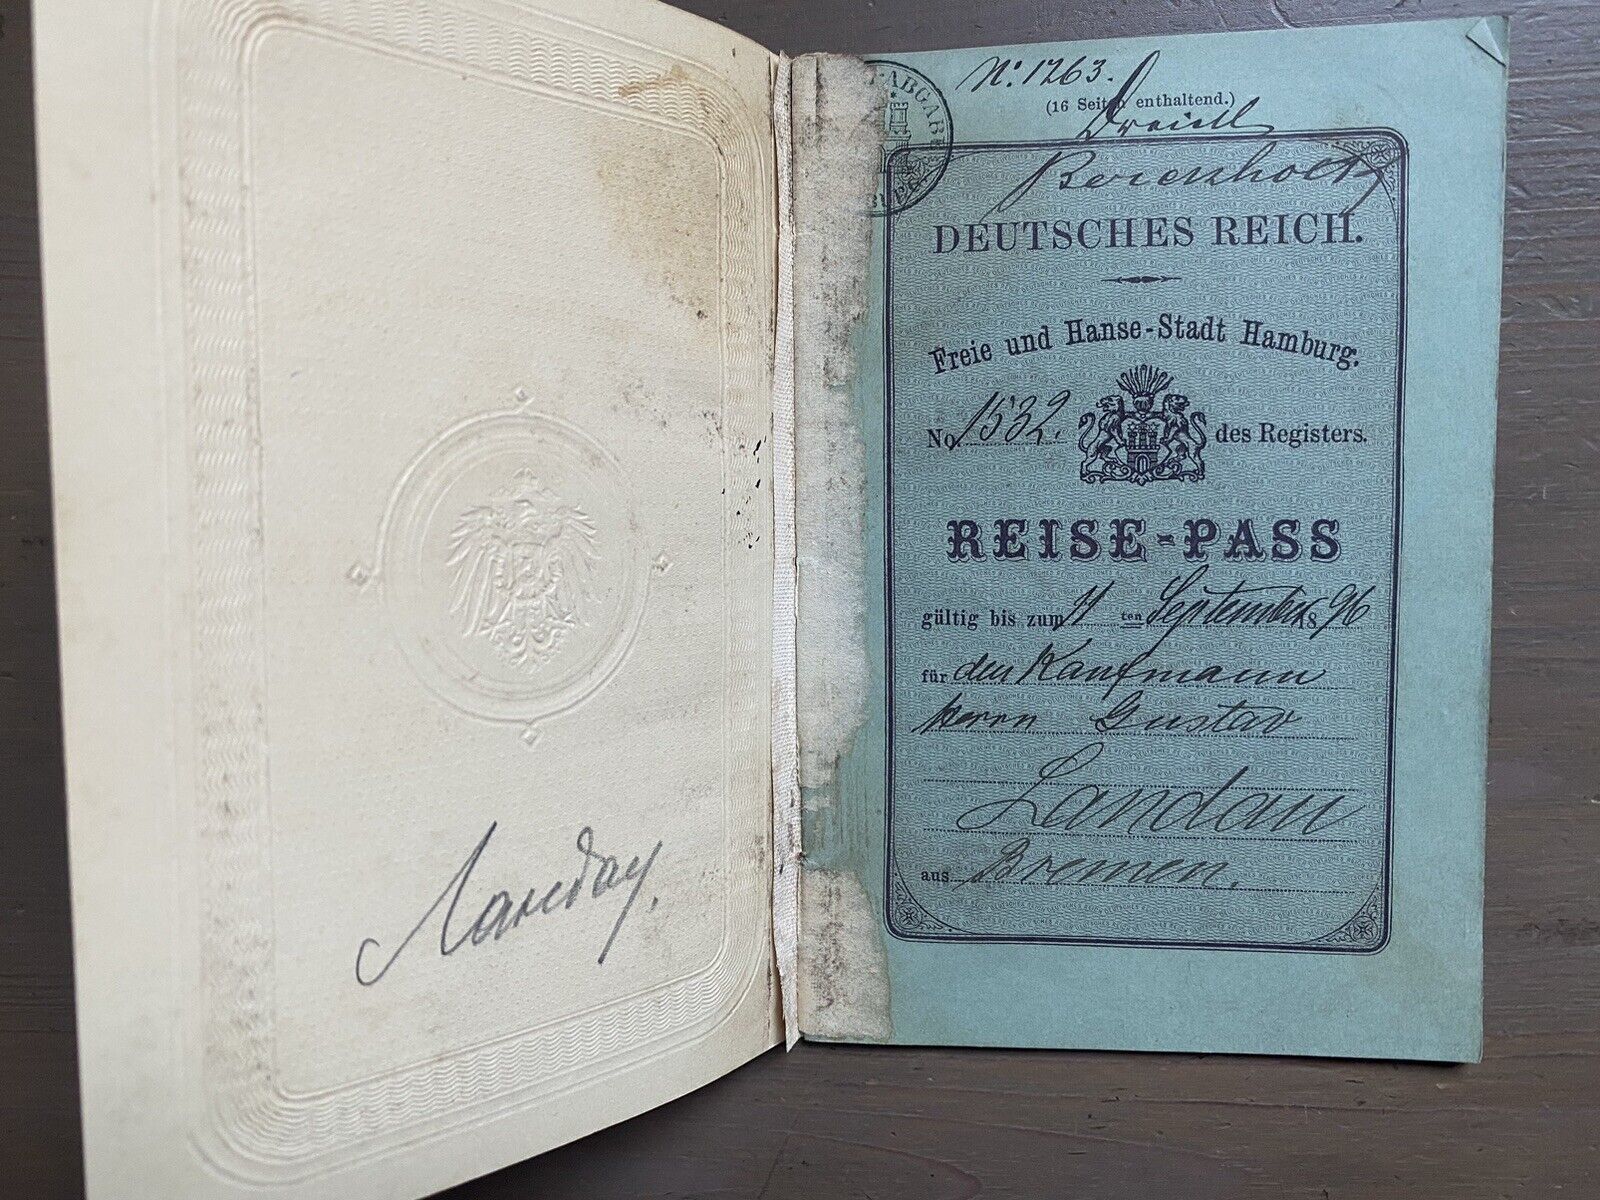 Landau.
ABGABE
No. 1263.
(16 Seiten enthaltend.)
DEUTSCHES REICH.
Freie und Hanse-Stadt Hamburg.
No 1532. des Registers.
REISE-PASS
gültig bis zum 11 ten September 1896
für den Kaufmann
Herrn Gustav
Landau
aus Bremen.